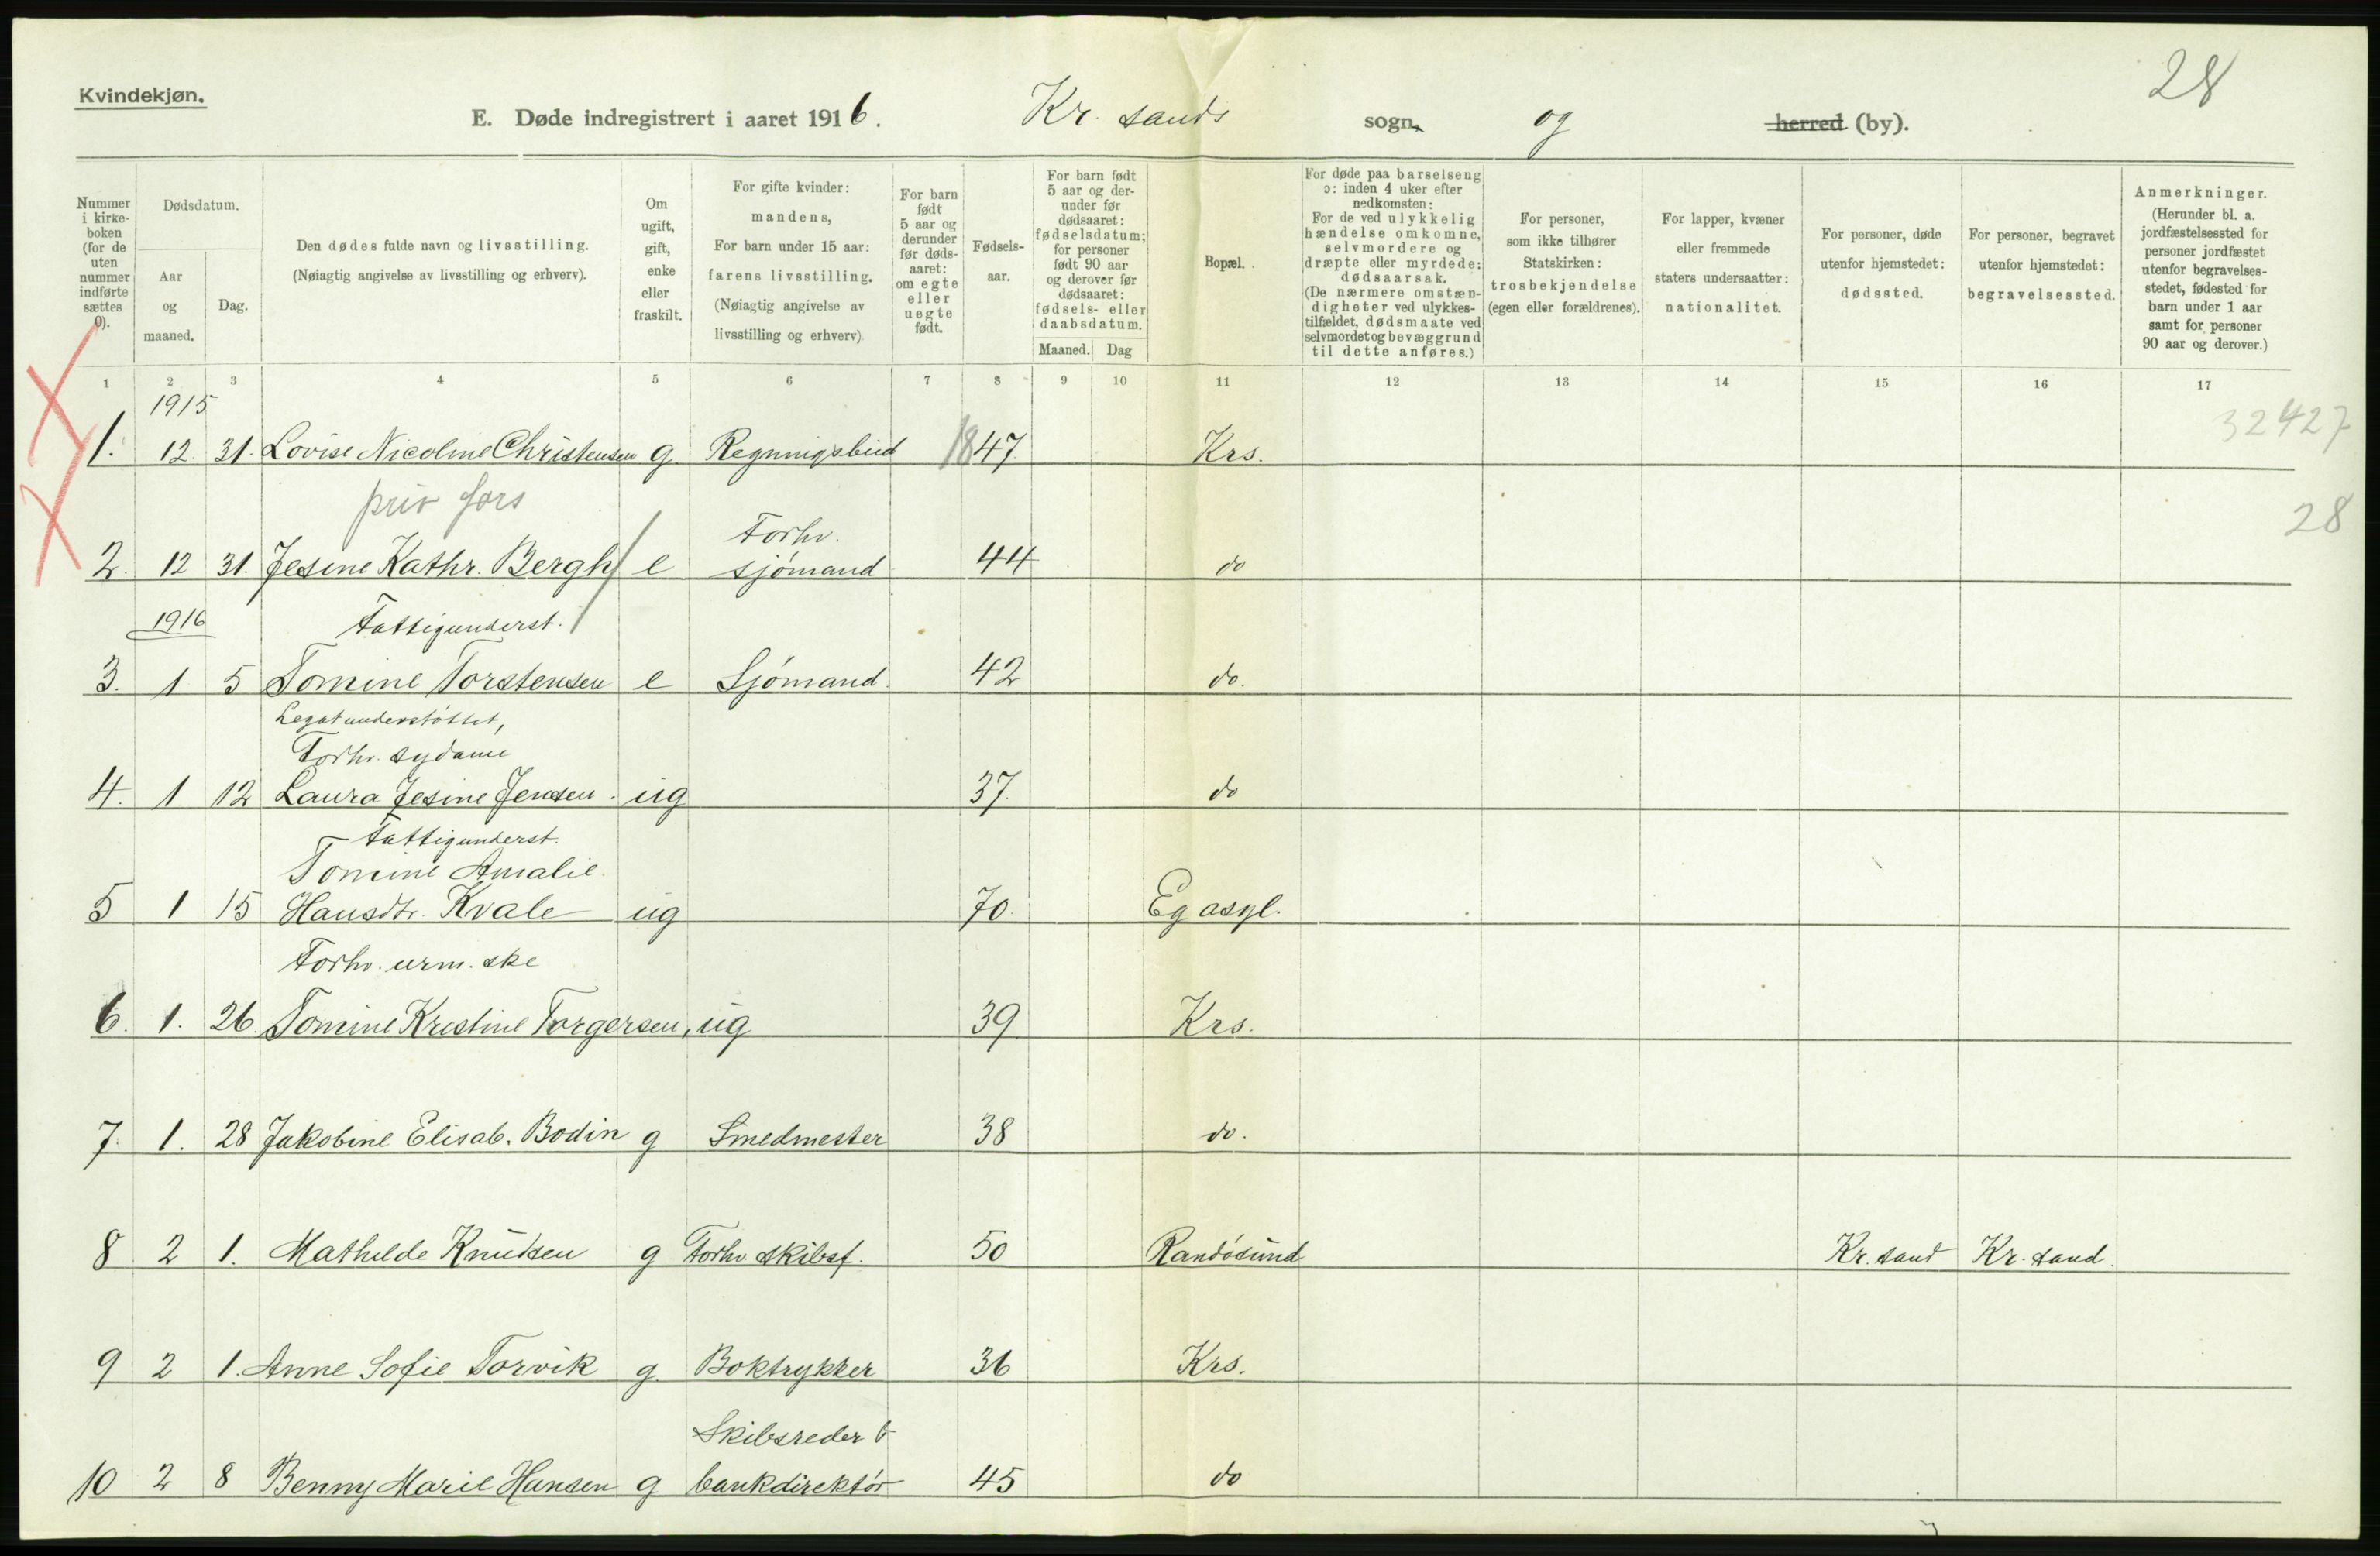 Kvindekjøn.
28
E. Døde indregistrert i aaret 1916. Kr. sands sogn og herred (by).
Nummer i kirke-boken (for de uten nummer indførte sættes 0).
Dødsdatum.
Aar og maaned.
Dag.
Den dødes fulde navn og livsstilling.
(Nøiagtig angivelse av livsstilling og erhverv).
Om ugift, gift, enke eller fraskilt.
For gifte kvinder: mandens,
For barn under 15 aar: farens livsstilling.
(Nøiagtig angivelse av livsstilling og erhverv)
For barn født 5 aar og derunder før døds-aaret: om egte eller uegte født.
Fødsels-aar.
For barn født 5 aar og der-under før dødsaaret: fødselsdatum; for personer født 90 aar og derover før dødsaaret: fødsels- eller daabsdatum.
Maaned. Dag
Bopæl.
For døde paa barselseng ɔ: inden 4 uker efter nedkomsten:
For de ved ulykkelig hændelse omkomne, selvmordere og dræpte eller myrdede: dødsaarsak.
(De nærmere omstæn-digheter ved ulykkes-tilfældet, dødsmaate ved selvmordet og bevæggrund til dette anføres.)
For personer, som ikke tilhører Statskirken: trosbekjendelse (egen eller forældrenes).
For lapper, kvæner eller fremmede staters undersaatter: nationalitet.
For personer, døde utenfor hjemstedet: dødssted.
For personer, begravet utenfor hjemstedet: begravelsessted.
Anmerkninger.
(Herunder bl. a. jordfæstelsessted for personer jordfæstet utenfor begravelses-stedet, fødested for barn under 1 aar samt for personer 90 aar og derover.)
1 2 3 4 5 6 7 8 9 10 11 12 13 14 15 16 17
1915
32427
1. 12 31. Lovise Nicoline Christensen g. Regningsbud 1847. Krs.
priv fors
28
Forhv.
2. 12 31. Jesine Kathr. Bergh e sjömand 44 do
1916 Fattigunderst.
3. 1 5 Tomine Torstensen e Sjömand. 42 do.
Legatunderstöttet,
Forhv. sydame
4. 1 12 Laura Jesine Jensen. ug 37. do
Fattigunderst.
Tomine Amalie.
5 1 15 Hansdtr. Kvale ug 70. Eg asyl.
Forhv. urm. ske
6. 1. 26. Tomine Kristine Torgersen, ug 39 Krs.
7. 1. 28 Jakobine Elisab. Bodin g Smedmester 38 do.
8 2 1. Mathilde Knudsen g Forhv. skibsf. 50 Randösund Kr. sand Kr. sand.
9 2 1. Anne Sofie Torvik g. Boktrykker 36 Krs.
Skibsreder &
10 2 8 Benny Marie Hansen g bankdirektör 45 do